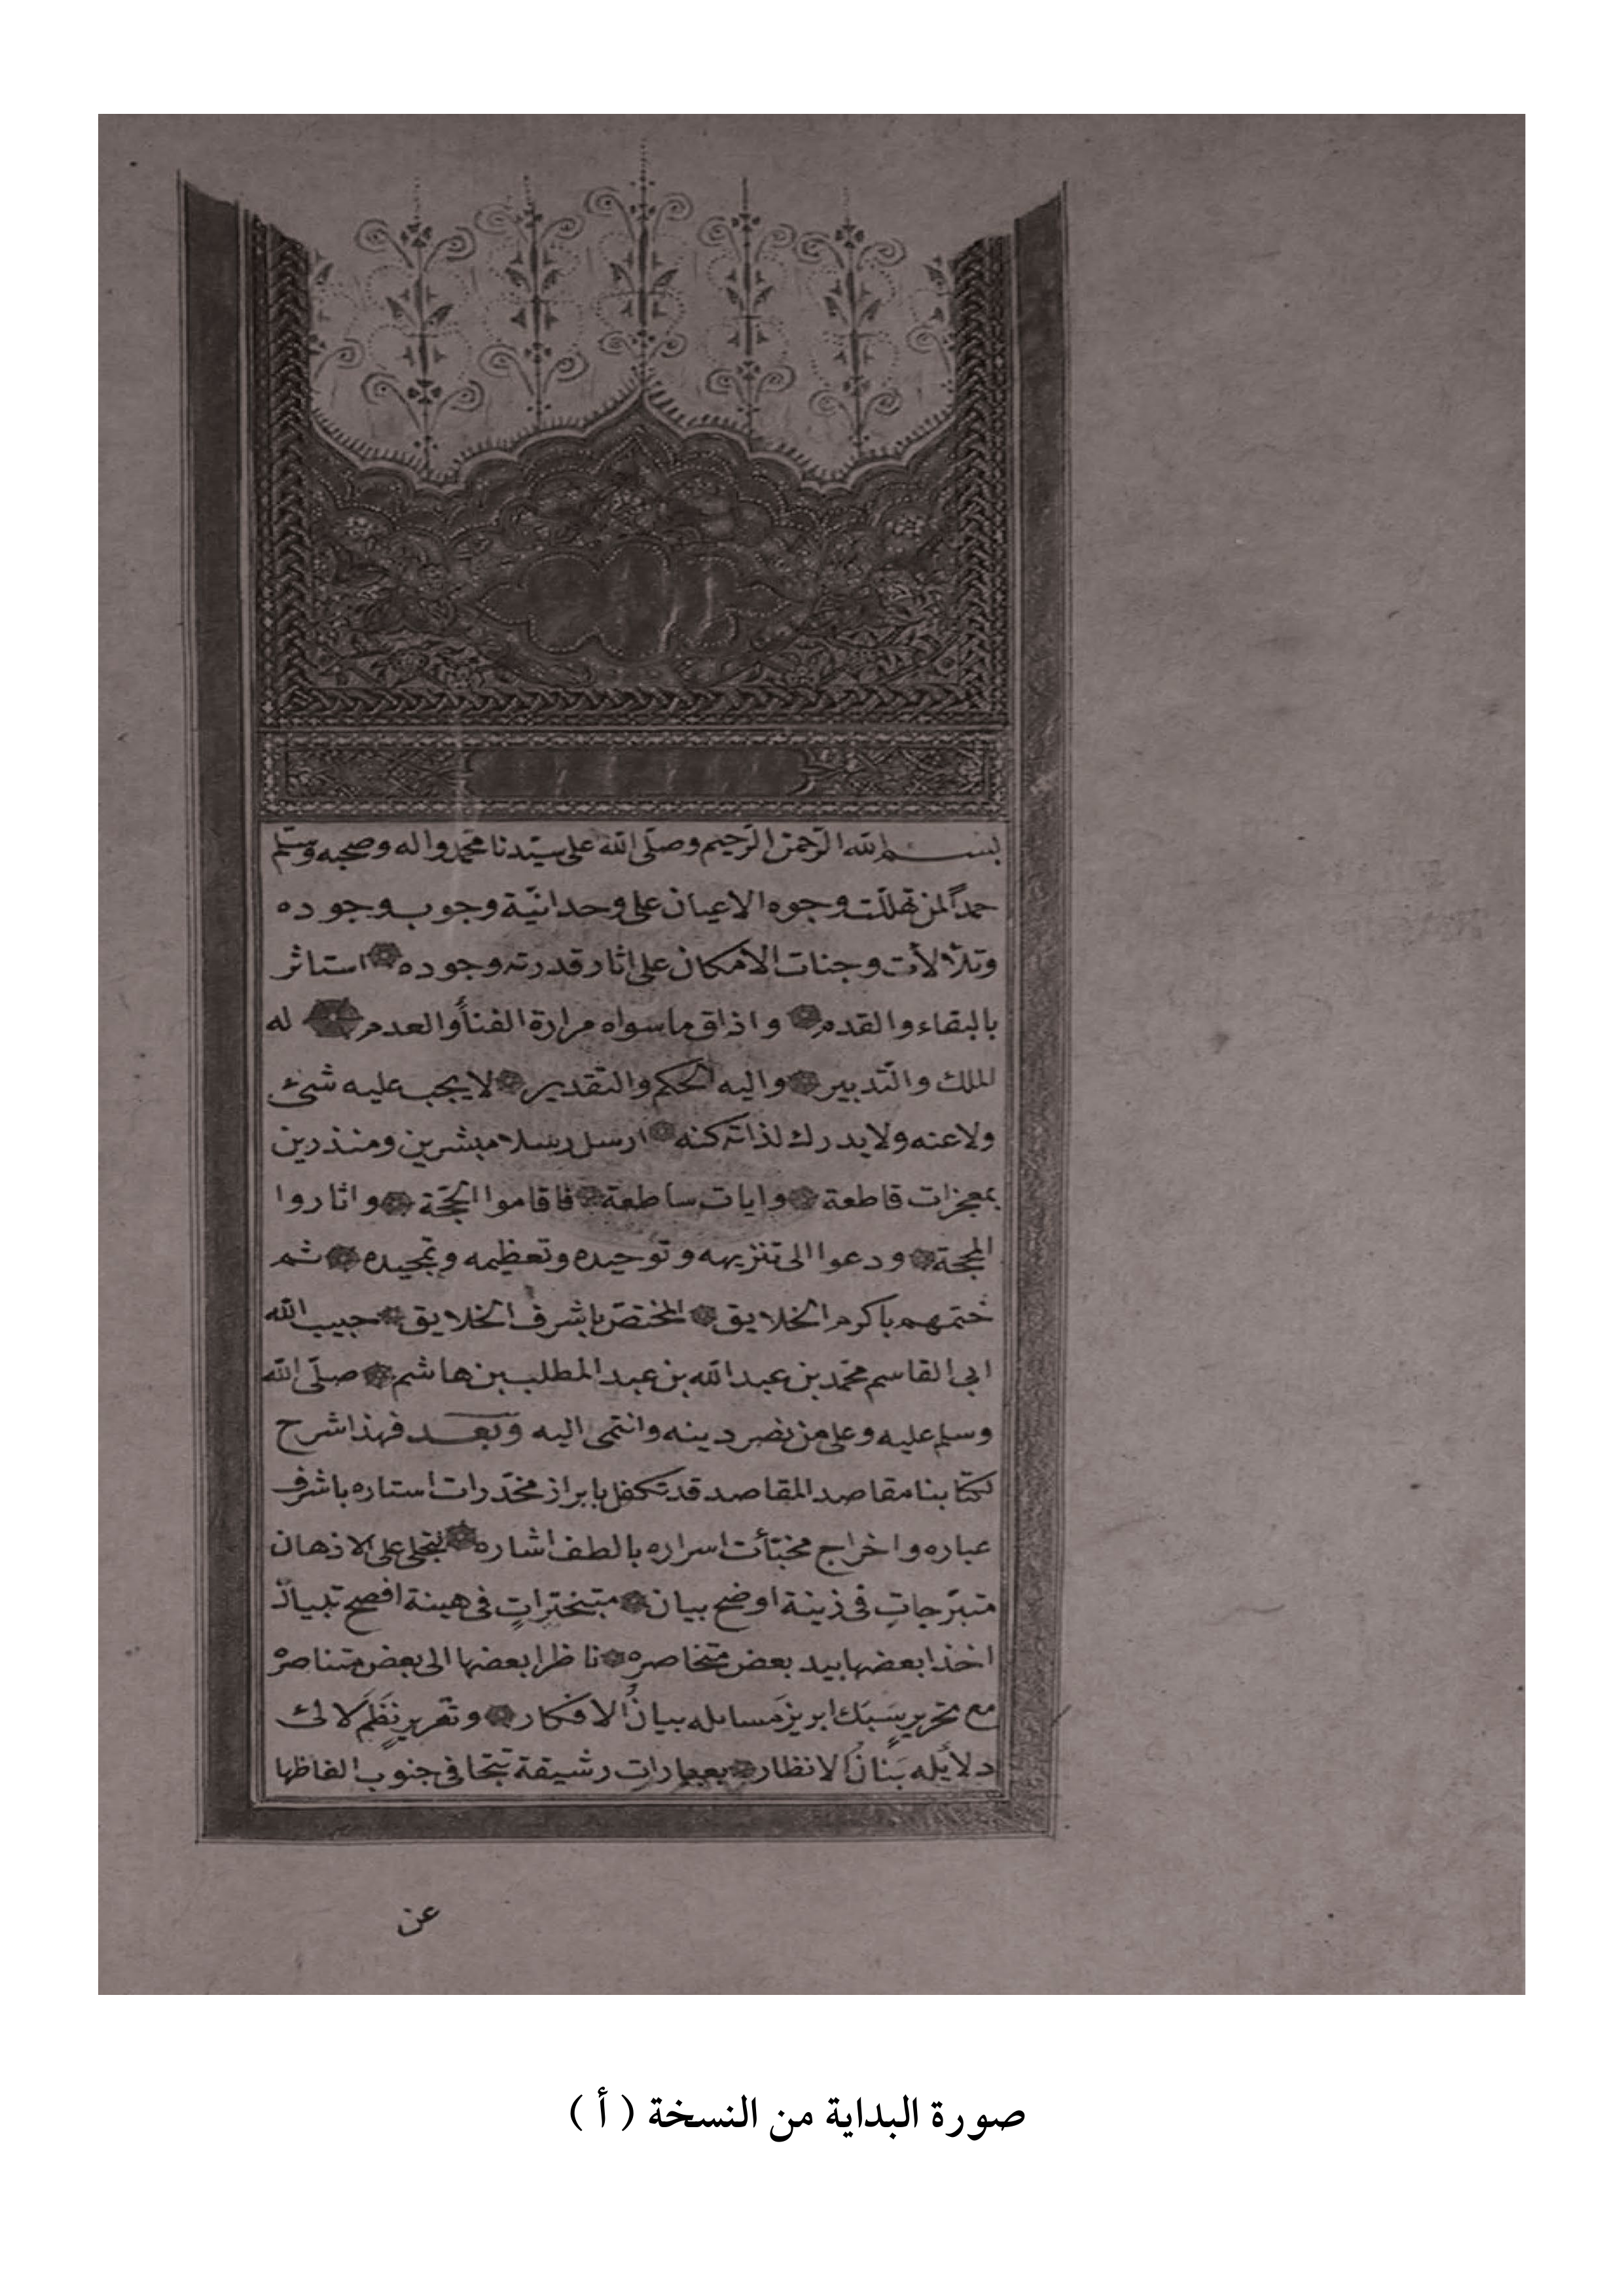 بسم الله الرحمن الرحيم وصلى الله على سيدنا محمد واله وصحبه وسلم
حمداً لمن تهللت وجوه الاعيان على وحدانية وجوب وجوده
وتلألأت وجنات الامكان على اثار قدرته وجوده استاثر
بالبقاء والقدم واذاق ماسواه مرارة الفنأ والعدم له
الملك والتدبير واليه الحكم والتقدير لا يجب عليه شئ
ولا عنه ولا يدرك لذاته كنه ارسل رسلا مبشرين ومنذرين
بمعجزات قاطعة وايات ساطعة فاقاموا الحجة واناروا
المحجة ودعوا الى تنزيهه وتوحيده وتعظيمه وتمجيده ثم
ختمهم باكرم الخلايق المختص باشرف الخلايق حبيب الله
ابى القاسم محمد بن عبد الله بن عبد المطلب بن هاشم صلى الله
وسلم عليه وعلى من نصر دينه وانتمى اليه وبعد فهذا شرح
لكتابنا مقاصد المقاصد قد تكفل بابراز مخدرات استاره باشرف
عباره واخراج مخبآت اسراره بالطف اشاره لتجلى على الاذهان
متبرجاتٍ فى زينة اوضح بيان متبخترات فى هيئة افصح تبيان
اخذا بعضها بيد بعض متخاصره ناظرا بعضها الى بعض متناصره
مع تحرير سَبَك ابريز مسايله بيانُ الافكار وتقرير نَظَم لالئ
دلايله بَنانُ الانظار بعبارات رشيقة تتجافى جنوب الفاظها
عن
صورة البداية من النسخة ( أ )